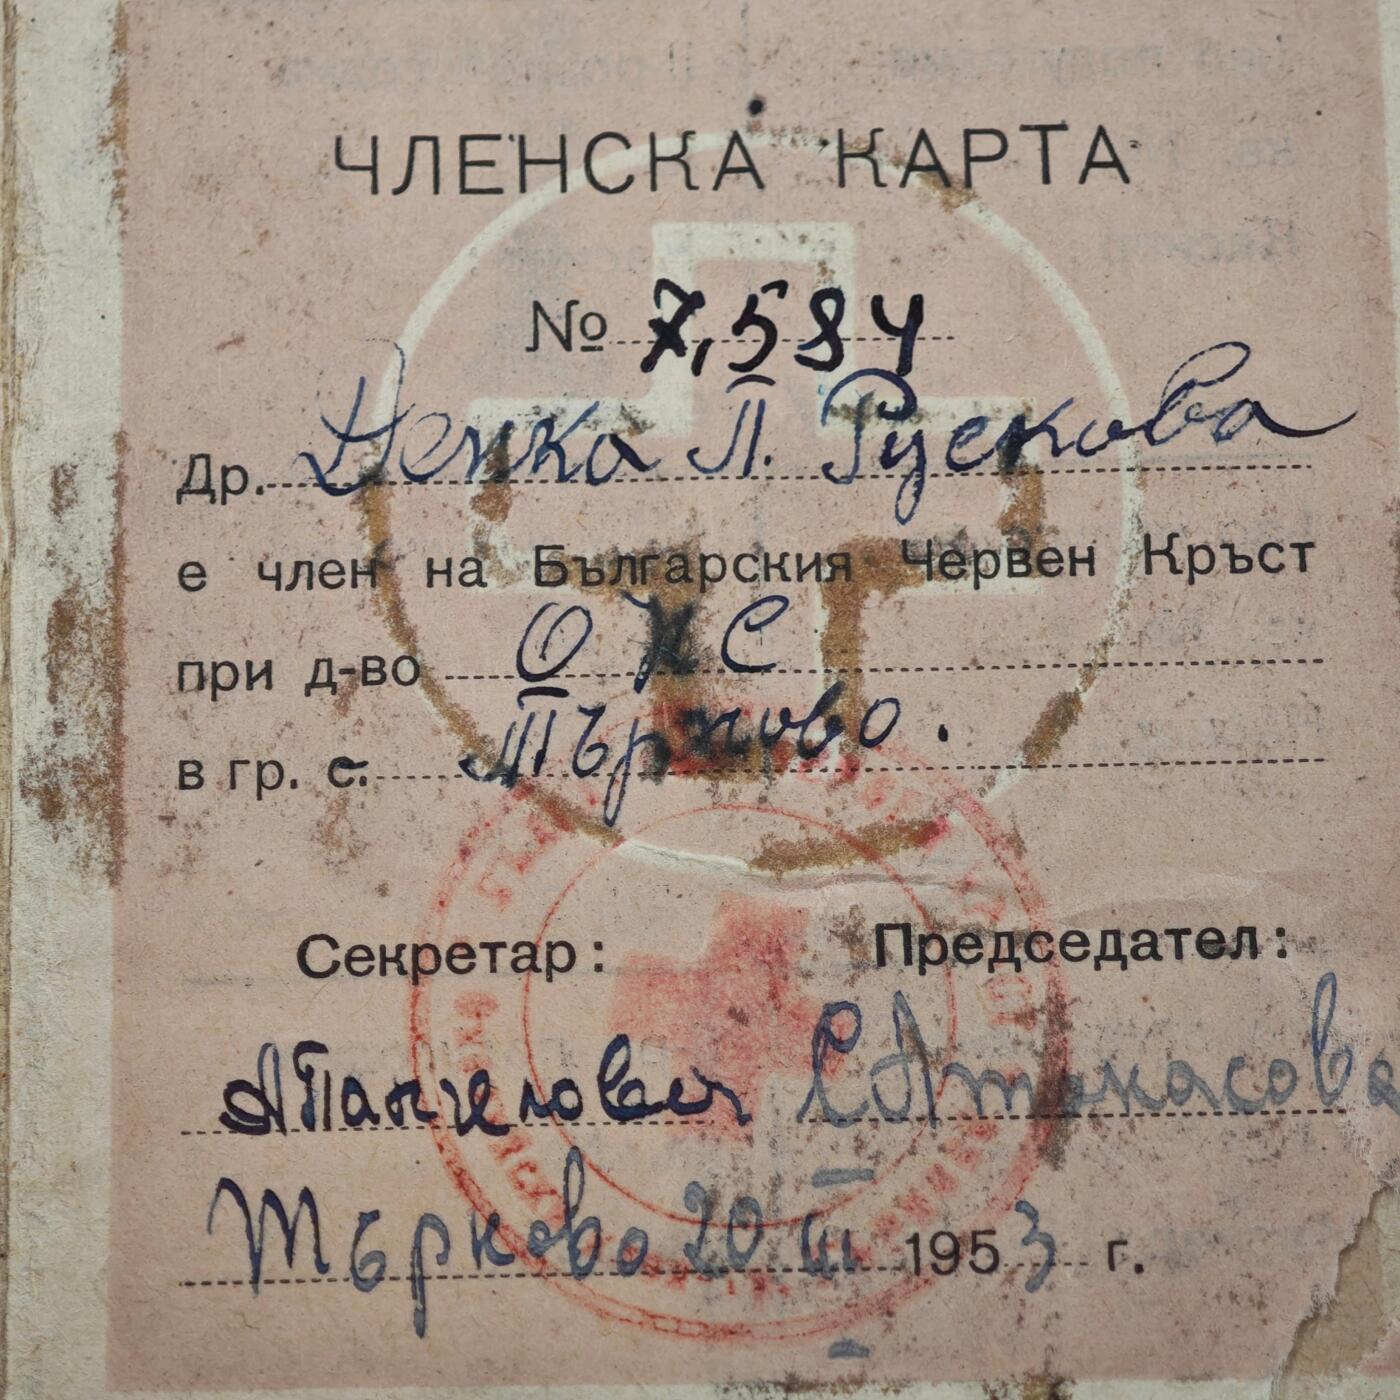 ЧЛЕНСКА КАРТА
№ 7,584
Др. Ненка П. Рускова
е член на Българския Червен Кръст
при д-во О К С
в гр. с. Търново.
Секретар: Председател:
С Атанасова
Търново 20 III 1953 г.